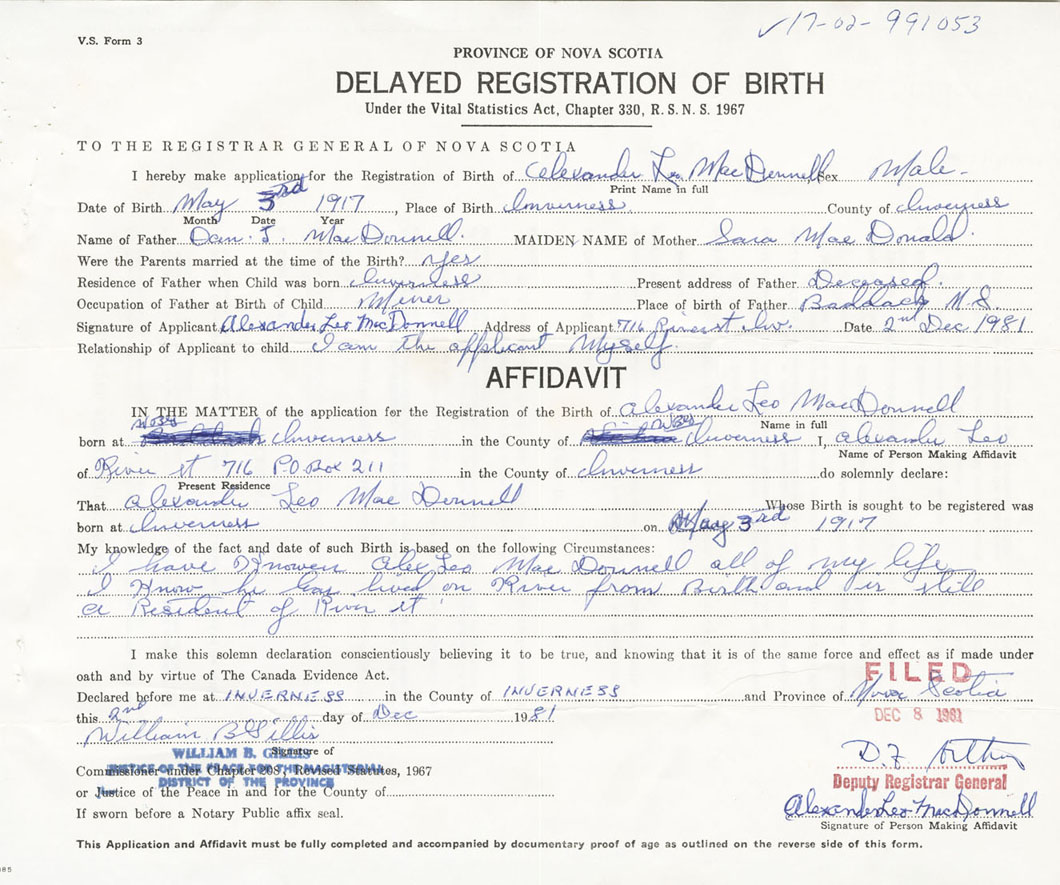 17-02-991053
V.S. Form 3
PROVINCE OF NOVA SCOTIA
DELAYED REGISTRATION OF BIRTH
Under the Vital Statistics Act, Chapter 330, R. S. N. S. 1967
TO THE REGISTRAR GENERAL OF NOVA SCOTIA
I hereby make application for the Registration of Birth of Alexander Leo MacDonnell Sex Male
Print Name in full
Date of Birth May 3rd 1917, Place of Birth Inverness County of Inverness
Month Date Year
Name of Father Dan. J. MacDonnell. MAIDEN NAME of Mother Sara MacDonald.
Were the Parents married at the time of the Birth? Yes
Residence of Father when Child was born Inverness Present address of Father Deceased.
Occupation of Father at Birth of Child Miner Place of birth of Father Baddack N.S.
Signature of Applicant Alexander Leo MacDonnell Address of Applicant 716 River st Inv. Date 2nd Dec. 1981
Relationship of Applicant to child I am the applicant Myself.
AFFIDAVIT
IN THE MATTER of the application for the Registration of the Birth of Alexander Leo MacDonnell
Name in full
born at Inverness in the County of Inverness I, Alexander Leo
Name of Person Making Affidavit
of River st 716 P.O Box 211 in the County of Inverness do solemnly declare:
Present Residence
That Alexander Leo MacDonnell Whose Birth is sought to be registered was
born at Inverness on May 3rd 1917
My knowledge of the fact and date of such Birth is based on the following Circumstances:
I have Knowen Alex Leo MacDonnell all of my life
I Know he has lived on River from Birth and is still
a Resident of River st
I make this solemn declaration conscientiously believing it to be true, and knowing that it is of the same force and effect as if made under
oath and by virtue of The Canada Evidence Act.
FILED
Declared before me at INVERNESS in the County of INVERNESS and Province of Nova Scotia
this 2nd day of Dec 1981
DEC 8 1981
William B Gillis
WILLIAM B. GILLIS
Signature of
Commissioner under Chapter 208, Revised Statutes, 1967
JUSTICE OF THE PEACE FOR THE MAGISTERIAL
DISTRICT OF THE PROVINCE
or Justice of the Peace in and for the County of
Deputy Registrar General
If sworn before a Notary Public affix seal.
Alexander Leo MacDonnell
Signature of Person Making Affidavit
This Application and Affidavit must be fully completed and accompanied by documentary proof of age as outlined on the reverse side of this form.